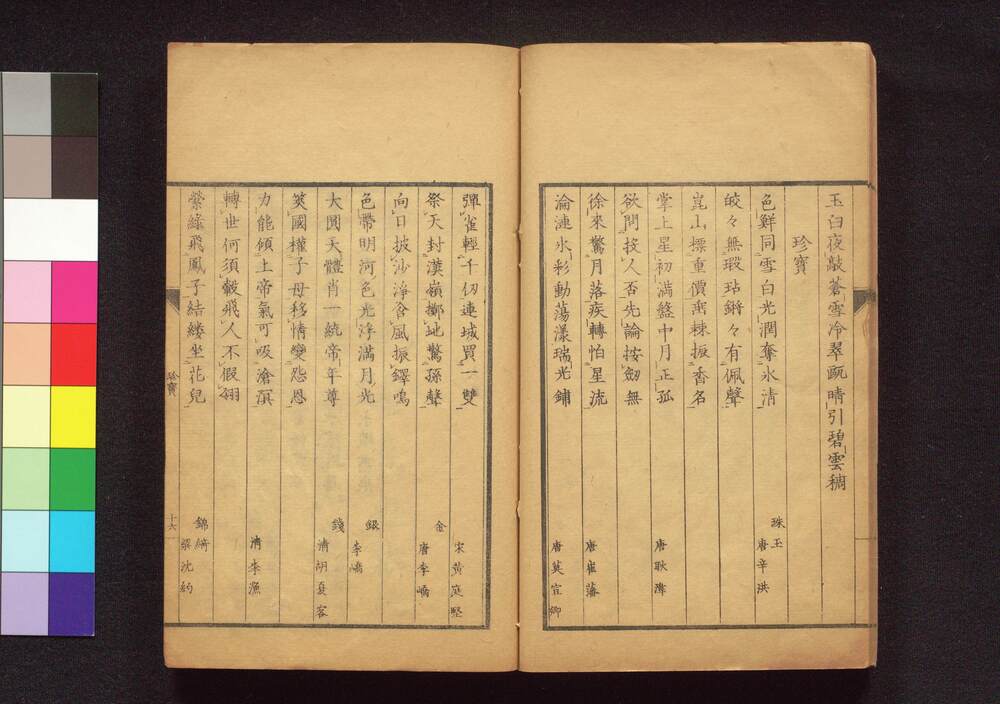 玉臼夜敲蒼雪冷翠甌晴引碧雲稠
珍寶
色鮮同雪白光潤奪氷清 珠玉 唐辛洪
皎々無瑕玷鏘々有佩聲
崑山標重價垂棘振香名
掌上星初滿盤中月正孤 唐耿湋
欲問投人否先論按劔無
徐來驚月落疾轉怕星流 唐崔藩
淪漣氷彩動蕩漾瑞光鋪 唐莫宣卿
彈雀輕千仞連城買一雙 宋黃庭堅
祭天封漢嶺擲地驚孫聲 金 唐李嶠
向日披沙淨含風振鐸鳴
色帶明河色光浮滿月光 銀 李嶠
大圓天體肖一統帝年尊 錢 淸胡夏容
筴國權子母移情變怨恩
力能傾上帝氣可吸滄溟 淸李漁
轉世何須轂飛人不假翎
縈綠飛鳳子結縷坐花兒 錦綺 梁沈約
珍寶
十六